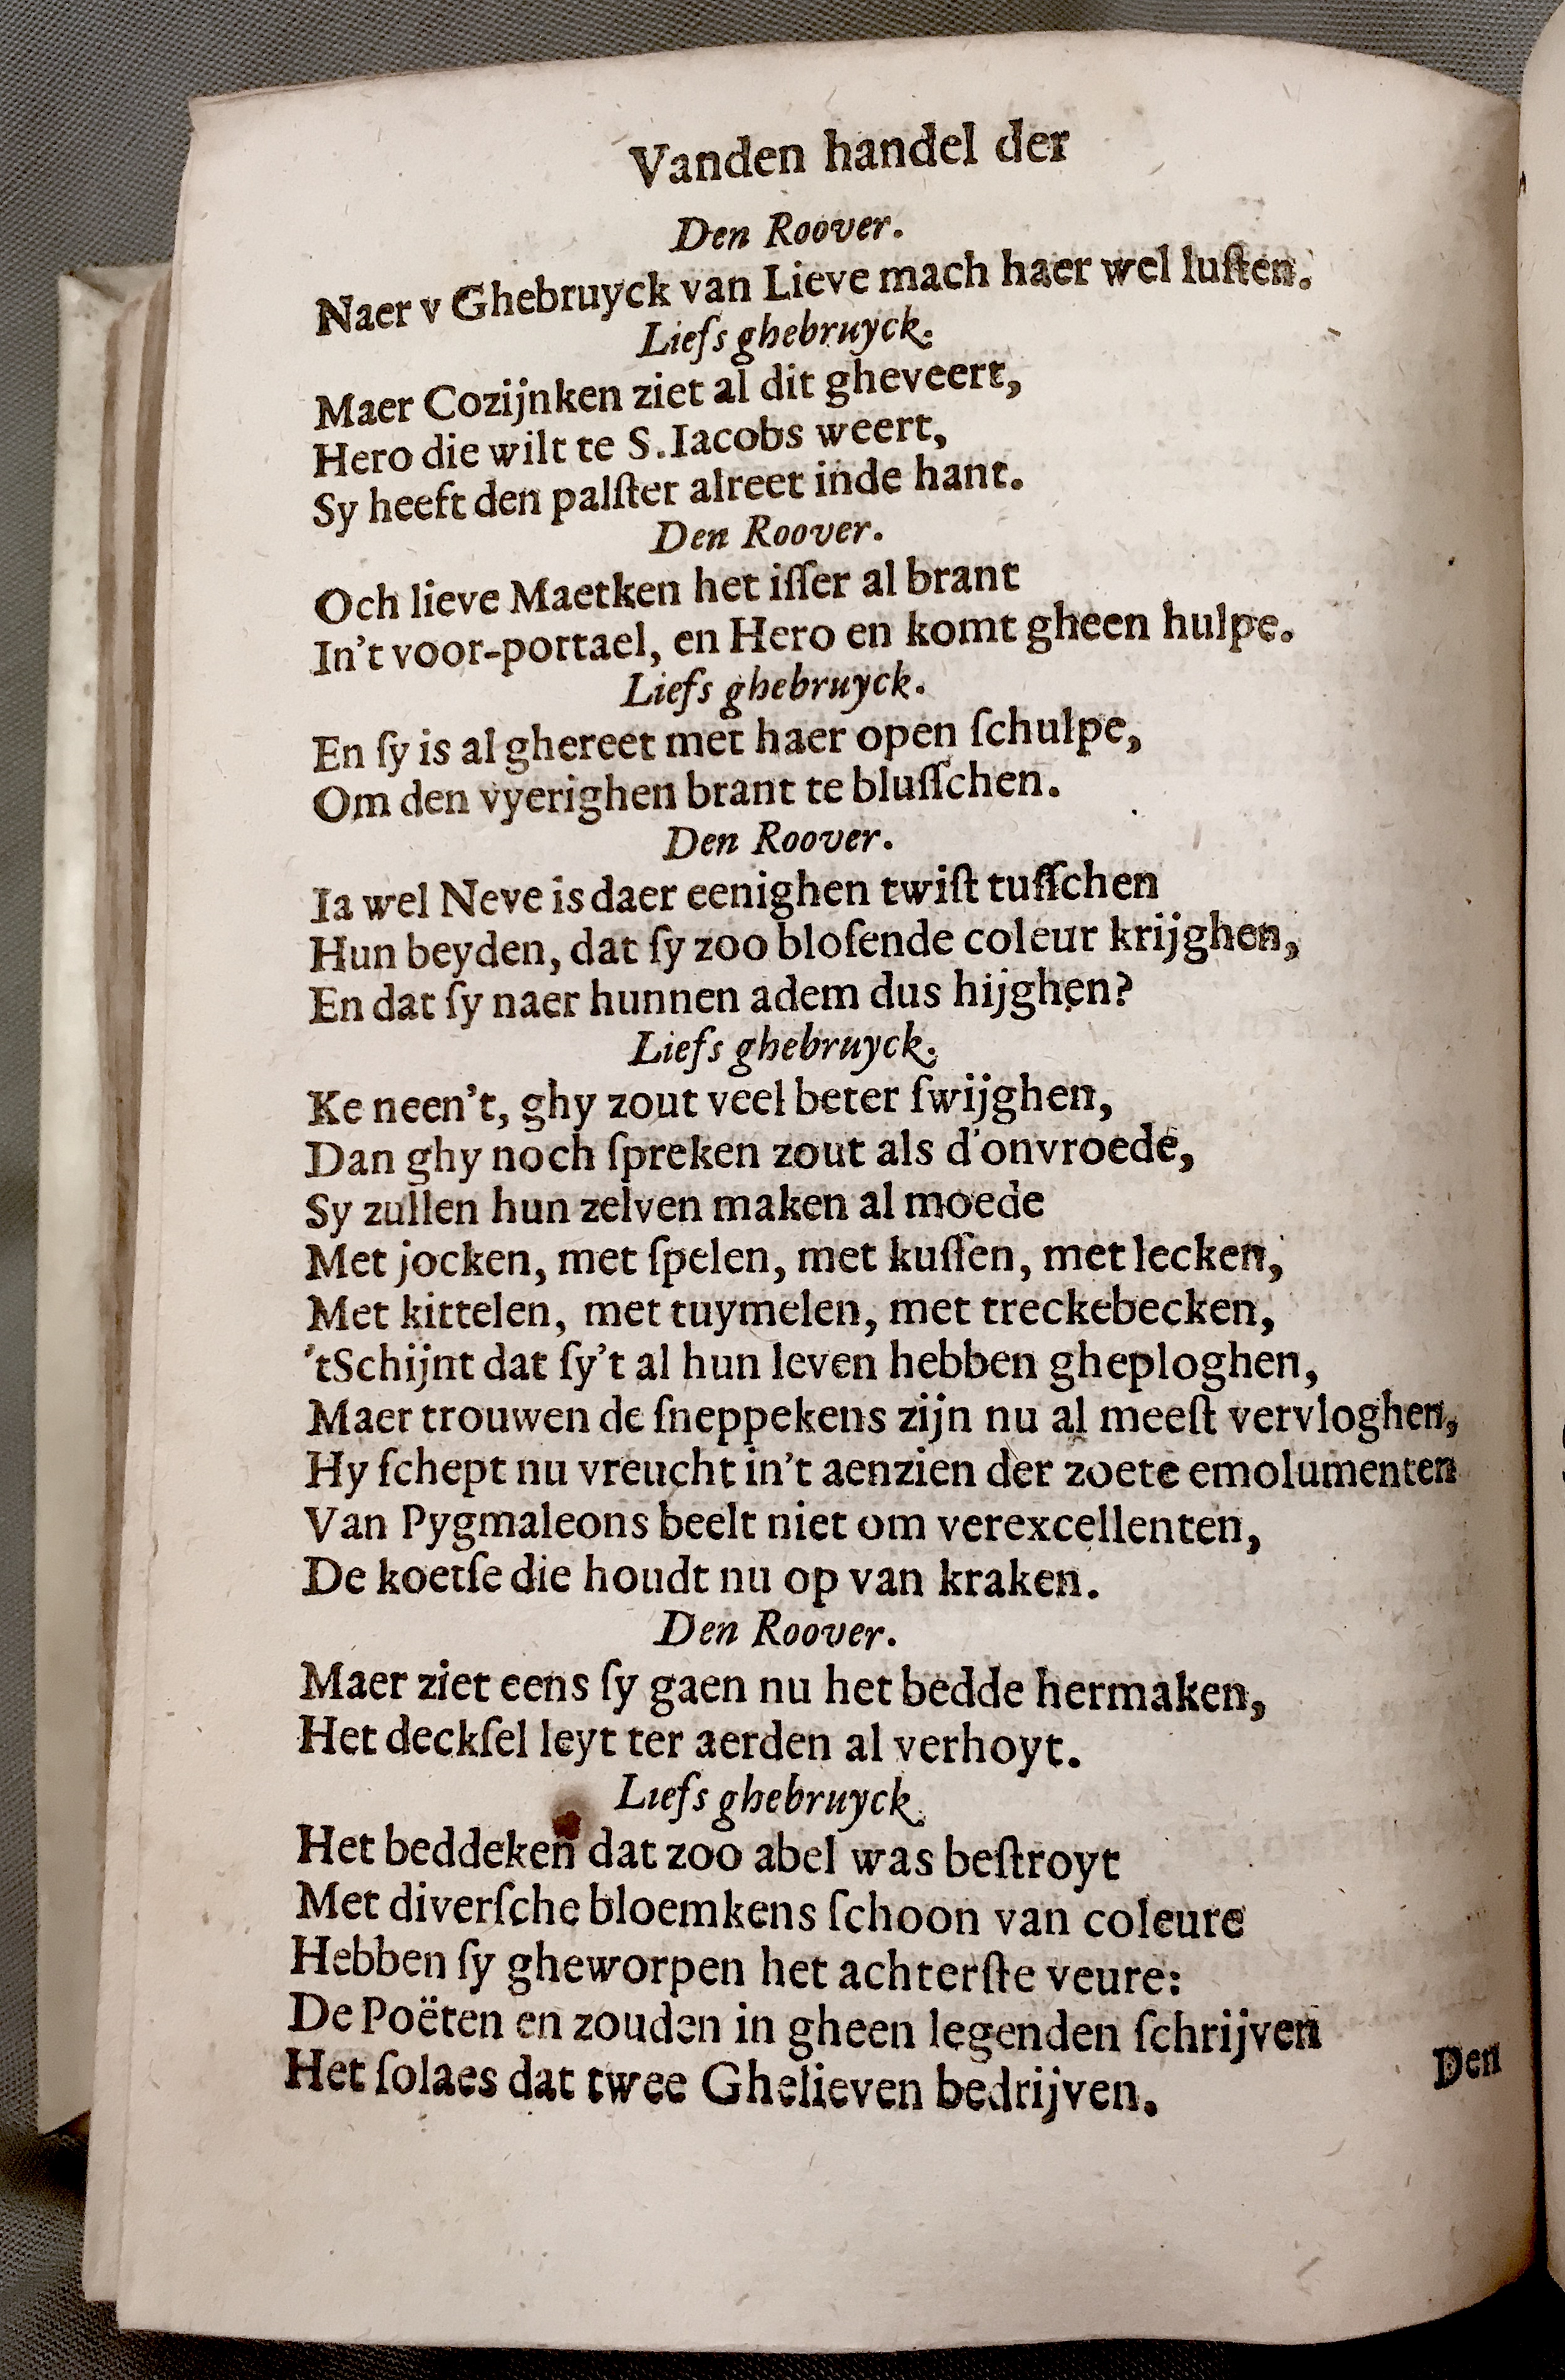 Vanden handel der
Den Roover.
Naer v Ghebruyck van Lieve mach haer wel luſten.
Liefs ghebruyck.
Maer Cozijnken ziet al dit gheveert,
Hero die wilt te S.Iacobs weert,
Sy heeft den palſter alreet inde hant.
Den Roover.
Och lieve Maetken het iſſer al brant
In't voor-portael, en Hero en komt gheen hulpe.
Liefs ghebruyck.
En ſy is al ghereet met haer open ſchulpe,
Om den vyerighen brant te bluſſchen.
Den Roover.
Ia wel Neve is daer eenighen twiſt tuſſchen
Hun beyden, dat ſy zoo bloſende coleur krijghen,
En dat ſy naer hunnen adem dus hijghen?
Liefs ghebruyck.
Ke neen't, ghy zout veel beter ſwijghen,
Dan ghy noch ſpreken zout als d'onvroede,
Sy zullen hun zelven maken al moede
Met jocken, met ſpelen, met kuſſen, met lecken,
Met kittelen, met tuymelen, met treckebecken,
'tSchijnt dat ſy't al hun leven hebben gheploghen,
Maer trouwen de ſneppekens zijn nu al meeſt vervloghen,
Hy ſchept nu vreucht in't aenzien der zoete emolumenten
Van Pygmaleons beelt niet om verexcellenten,
De koetſe die houdt nu op van kraken.
Den Roover.
Maer ziet eens ſy gaen nu het bedde hermaken,
Het deckſel leyt ter aerden al verhoyt.
Liefs ghebruyck.
Het beddeken dat zoo abel was beſtroyt
Met diverſche bloemkens ſchoon van coleure
Hebben ſy gheworpen het achterſte veure:
De Poëten en zouden in gheen legenden ſchrijven
Het ſolaes dat twee Ghelieven bedrijven.
Den